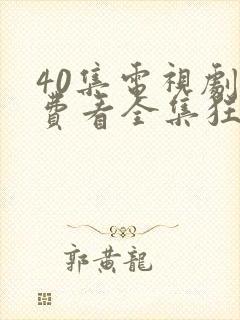 40集電視劇
費看全集狂
郭黄龍